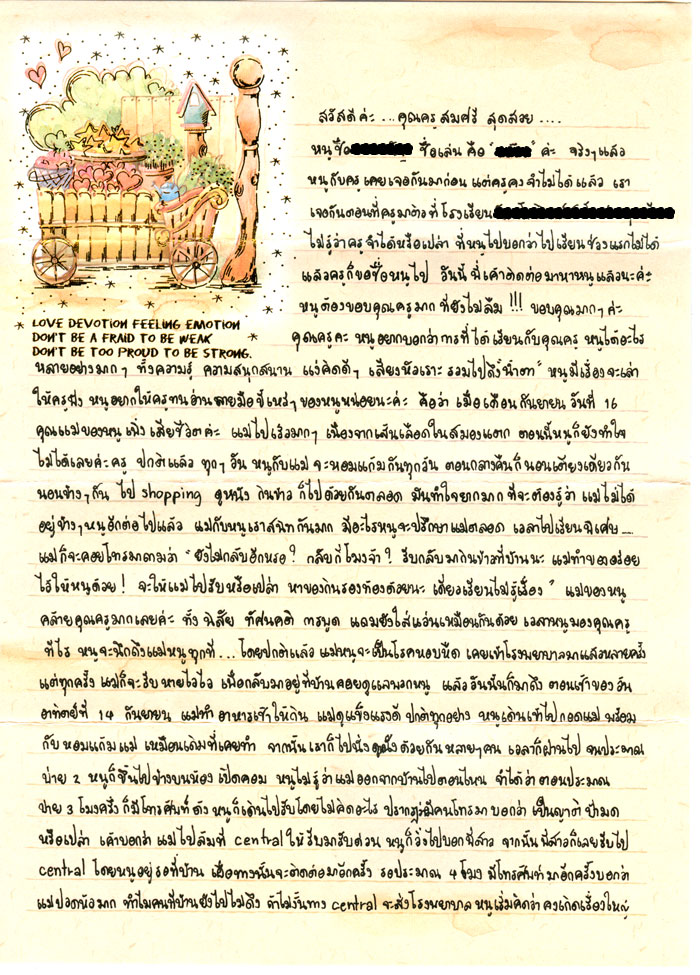 สวัสดีค่ะ ... คุณครูสมศรี สุดสวย ....
หนูชื่อ ชื่อเล่น คือ " " ค่ะ จริงๆแล้ว
หนูกับครูเคยเจอกันมาก่อน แต่ครูคงจำไม่ได้แล้ว เรา
เจอกันตอนที่ครูมาติวที่ โรงเรียน
ไม่รู้ว่าครูจำได้หรือเปล่า ที่หนูไปบอกว่าไปเรียนช่วงแรกไม่ได้
แล้วครูก็ขอชื่อหนูไป วันนี้ พี่เค้าติดต่อมาหาหนูแล้วนะค่ะ
หนูต้องขอบคุณครูมาก ที่ยังไม่ลืม !!! ขอบคุณมากๆ ค่ะ
LOVE DEVOTION FEELING EMOTION
DON'T BE A FRAID TO BE WEAK
DON'T BE TOO PROUD TO BE STRONG.
คุณครูคะ หนูอยากบอกว่าการที่ได้เรียนกับคุณครู หนูได้อะไร
หลายอย่างมากๆ ทั้งความรู้ ความสนุกสนาน แง่คิดดีๆ เสียงหัวเราะ รวมไปถึง"น้ำตา" หนูมีเรื่องจะเล่า
ให้ครูฟัง หนูอยากให้ครูทนอ่านลายมือขี้เหร่ๆ ของหนูหน่อยนะค่ะ คือว่า เมื่อเดือนกันยายน วันที่ 16
คุณแม่ของหนู เพิ่งเสียชีวิตค่ะ แม่ไปเร็วมากๆ เนื่องจากเส้นเลือดในสมองแตก ตอนนี้หนูก็ยังทำใจ
ไม่ได้เลยค่ะครู ปกติแล้ว ทุกๆ วัน หนูกับแม่ จะหอมแก้มกันทุกวัน ตอนกลางคืนก็นอนเตียงเดียวกัน
นอนข้างๆกัน ไป shopping ดูหนัง กินข้าว ก็ไปด้วยกันตลอด มันทำใจยากมากที่จะต้องรู้ว่า แม่ไม่ได้
อยู่ข้างๆหนูอีกต่อไปแล้ว แม่กับหนูเราสนิทกันมาก มีอะไรหนูจะปรึกษาแม่ตลอด เวลาไปเรียนพิเศษ...
แม่ก็จะคอยโทรมาถามว่า "ยังไม่กลับอีกหรอ? กลับกี่โมงจ๊ะ? รีบกลับมากินข้าวที่บ้านนะ แม่ทำของอร่อย
ไว้ให้หนูด้วย! จะให้แม่ไปรับหรือเปล่า หาของกินรองท้องด้วยนะ เดี๋ยวเรียนไม่รู้เรื่อง" แม่ของหนู
คล้ายคุณครูมากเลยค่ะ ทั้ง นิสัย ทัศนคติ การพูด แถมยังใส่แว่นเหมือนกันด้วย เวลาหนูมองคุณครู
ทีไร หนูจะนึกถึงแม่หนูทุกที ... โดยปกติแล้ว แม่หนูจะเป็นโรคหอบหืด เคยเข้าโรงพยาบาลมาแล้วหลายครั้ง
แต่ทุกครั้ง แม่ก็จะรีบหายไวไว เพื่อกลับมาอยู่ที่บ้านคอยดูแลพวกหนู แล้ววันนั้นก็มาถึง ตอนเช้าของวัน
อาทิตย์ที่ 14 กันยายน แม่ทำ อาหารเช้าให้กิน แม่ดูแข็งแรงดี ปกติทุกอย่าง หนูเดินเข้าไปกอดแม่ พร้อม
กับ หอมแก้มแม่ เหมือนเดิมที่เคยทำ จากนั้น เราก็ไปนั่งดูหนังด้วยกัน หลายๆคน เวลาก็ผ่านไป จนประมาณ
บ่าย 2 หนูก็ขึ้นไปข้างบนห้อง เปิดคอม หนูไม่รู้ว่าแม่ออกจากบ้านไปตอนไหน จำได้ว่าตอนประมาณ
บ่าย 3 โมงครึ่ง ก็มีโทรศัพท์ดัง หนูก็เดินไปรับโดยไม่คิดอะไร ปรากฏว่ามีคนโทรมาบอกว่า เป็นญาติ ป้ามด
หรือเปล่า เค้าบอกว่า แม่ไปล้มที่ central ให้รีบมารับด่วน หนูก็วิ่งไปบอกพี่สาว จากนั้นพี่สาวก็เลยรีบไป
central โดยหนูอยู่รอที่บ้าน เผื่อทางนั้นจะติดต่อมาอีกครั้ง รอประมาณ 4 โมง มีโทรศัพท์มาอีกครั้งบอกว่า
แม่ปวดหัวมาก ทำไมคนที่บ้านยังไปไม่ถึง ถ้าไม่งั้นทาง central จะส่งโรงพยาบาล หนูเริ่มคิดว่า คงเกิดเรื่องใหญ่